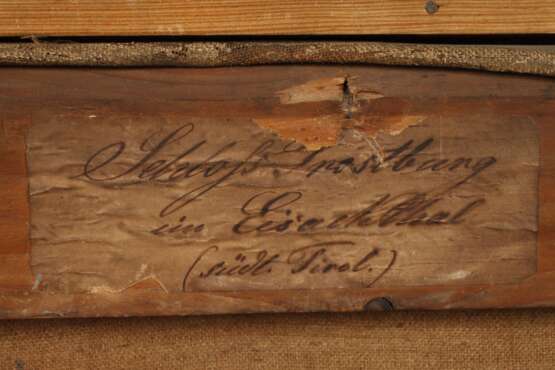 Schloß Trostburg
im Eisackthal
(südt. Tirol.)